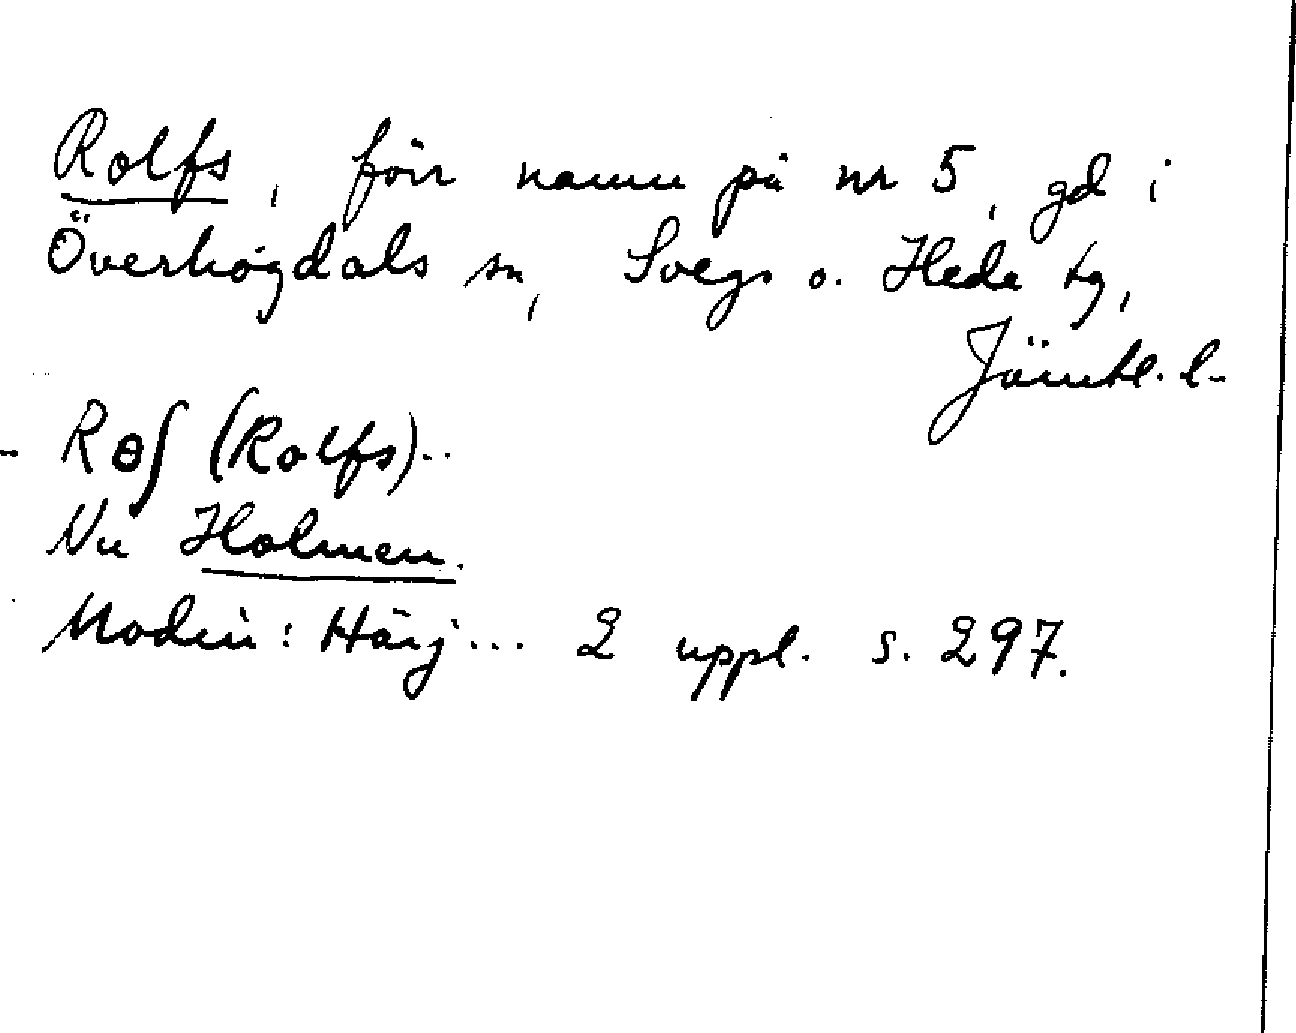 Rolfs, förr namn på nr 5, gd i
Överhogdals sn, Svegs o. Hede tg,
Jämtl. l.
- Rɵʃ (Rolfs)..
Nu Holmen.
Modin: Härj... 2 uppl. s. 297.